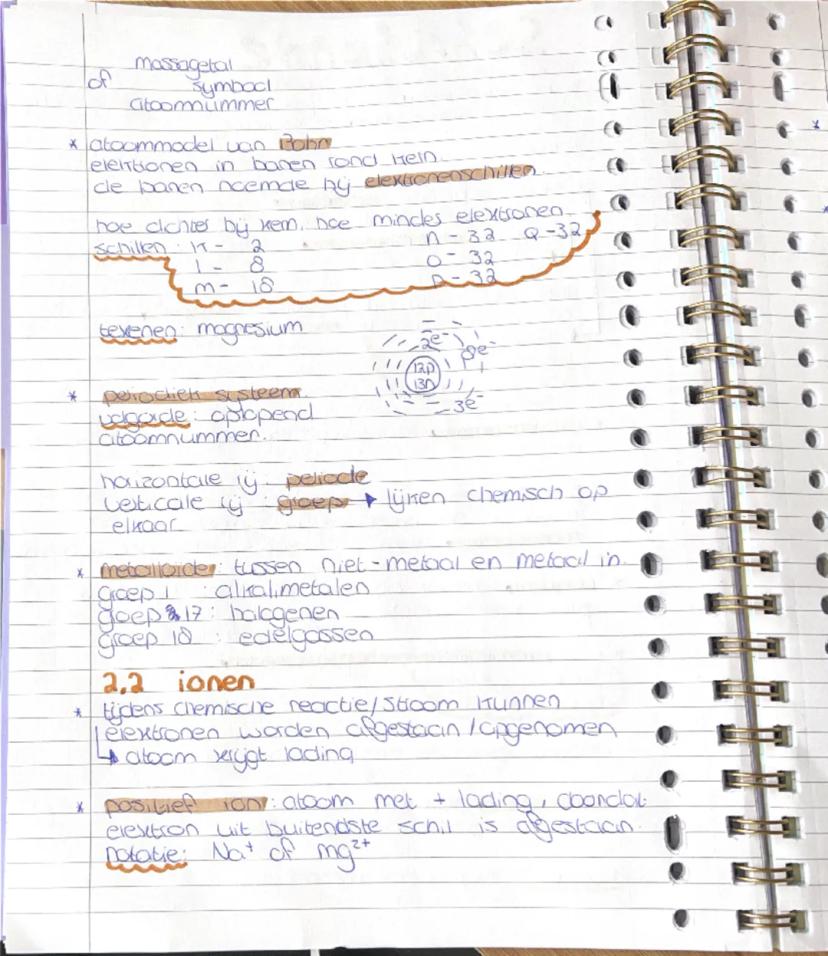 massagetal
of symbool
atoomnummer
* atoommodel van Bohr
elektronen in banen rond kern
de banen noemde hij elektronenschillen
hoe dichter bij kern, hoe minder elektronen
schillen: K - 2 n - 32 Q - 32
l - 8 o - 32
m - 18 p - 32
tekenen: magnesium
2e-
8e-
12p
13n
3e-
* periodiek systeem
volgorde: oplopend
atoomnummer.
horizontale rij: periode
verticale rij: groep → lijken chemisch op
elkaar
* metalloïde: tussen niet-metaal en metaal in
groep 1 : alkalimetalen
groep 17: halogenen
groep 18 : edelgassen
2.2 ionen
* tijdens chemische reactie/stroom kunnen
elektronen worden afgestaan/opgenomen
↳ atoom krijgt lading
* positief ion: atoom met + lading, doordat
elektron uit buitenste schil is afgestaan.
notatie: Na⁺ of mg²⁺